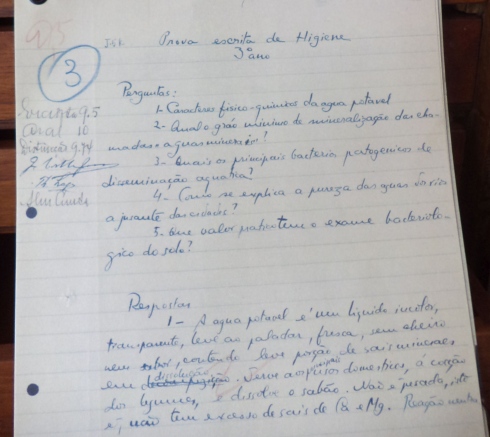 9,5
I.S.F. Prova escrita de Higiene
3º ano
3
Perguntas:
1- Caracteres fisico-quimicos da agua potavel
2- Qual o gráo minimo de mineralização das cha-
madas aguas mineraes?
3- Quais os principais bacteria patogenicos de
disseminação aquatica?
4- Como se explica a pureza das aguas dos rios
a jusante das cidades?
5- Que valor pratico tem o exame bacteriolo-
gico do solo?
9.5
Oral 10
Distincção 9.74
Respostas
1- A agua potavel é um liquido incolor,
transparente, leve ao paladar, fresca, sem cheiro
nem sabor, contendo leve porção de sais mineraes
em dissolução. Serve aos usos domesticos, á cocção
dos legumes, e dissolve o sabão. Não é pesada, isto
é, não tem excesso de sais de Ca e Mg. Reação neutra